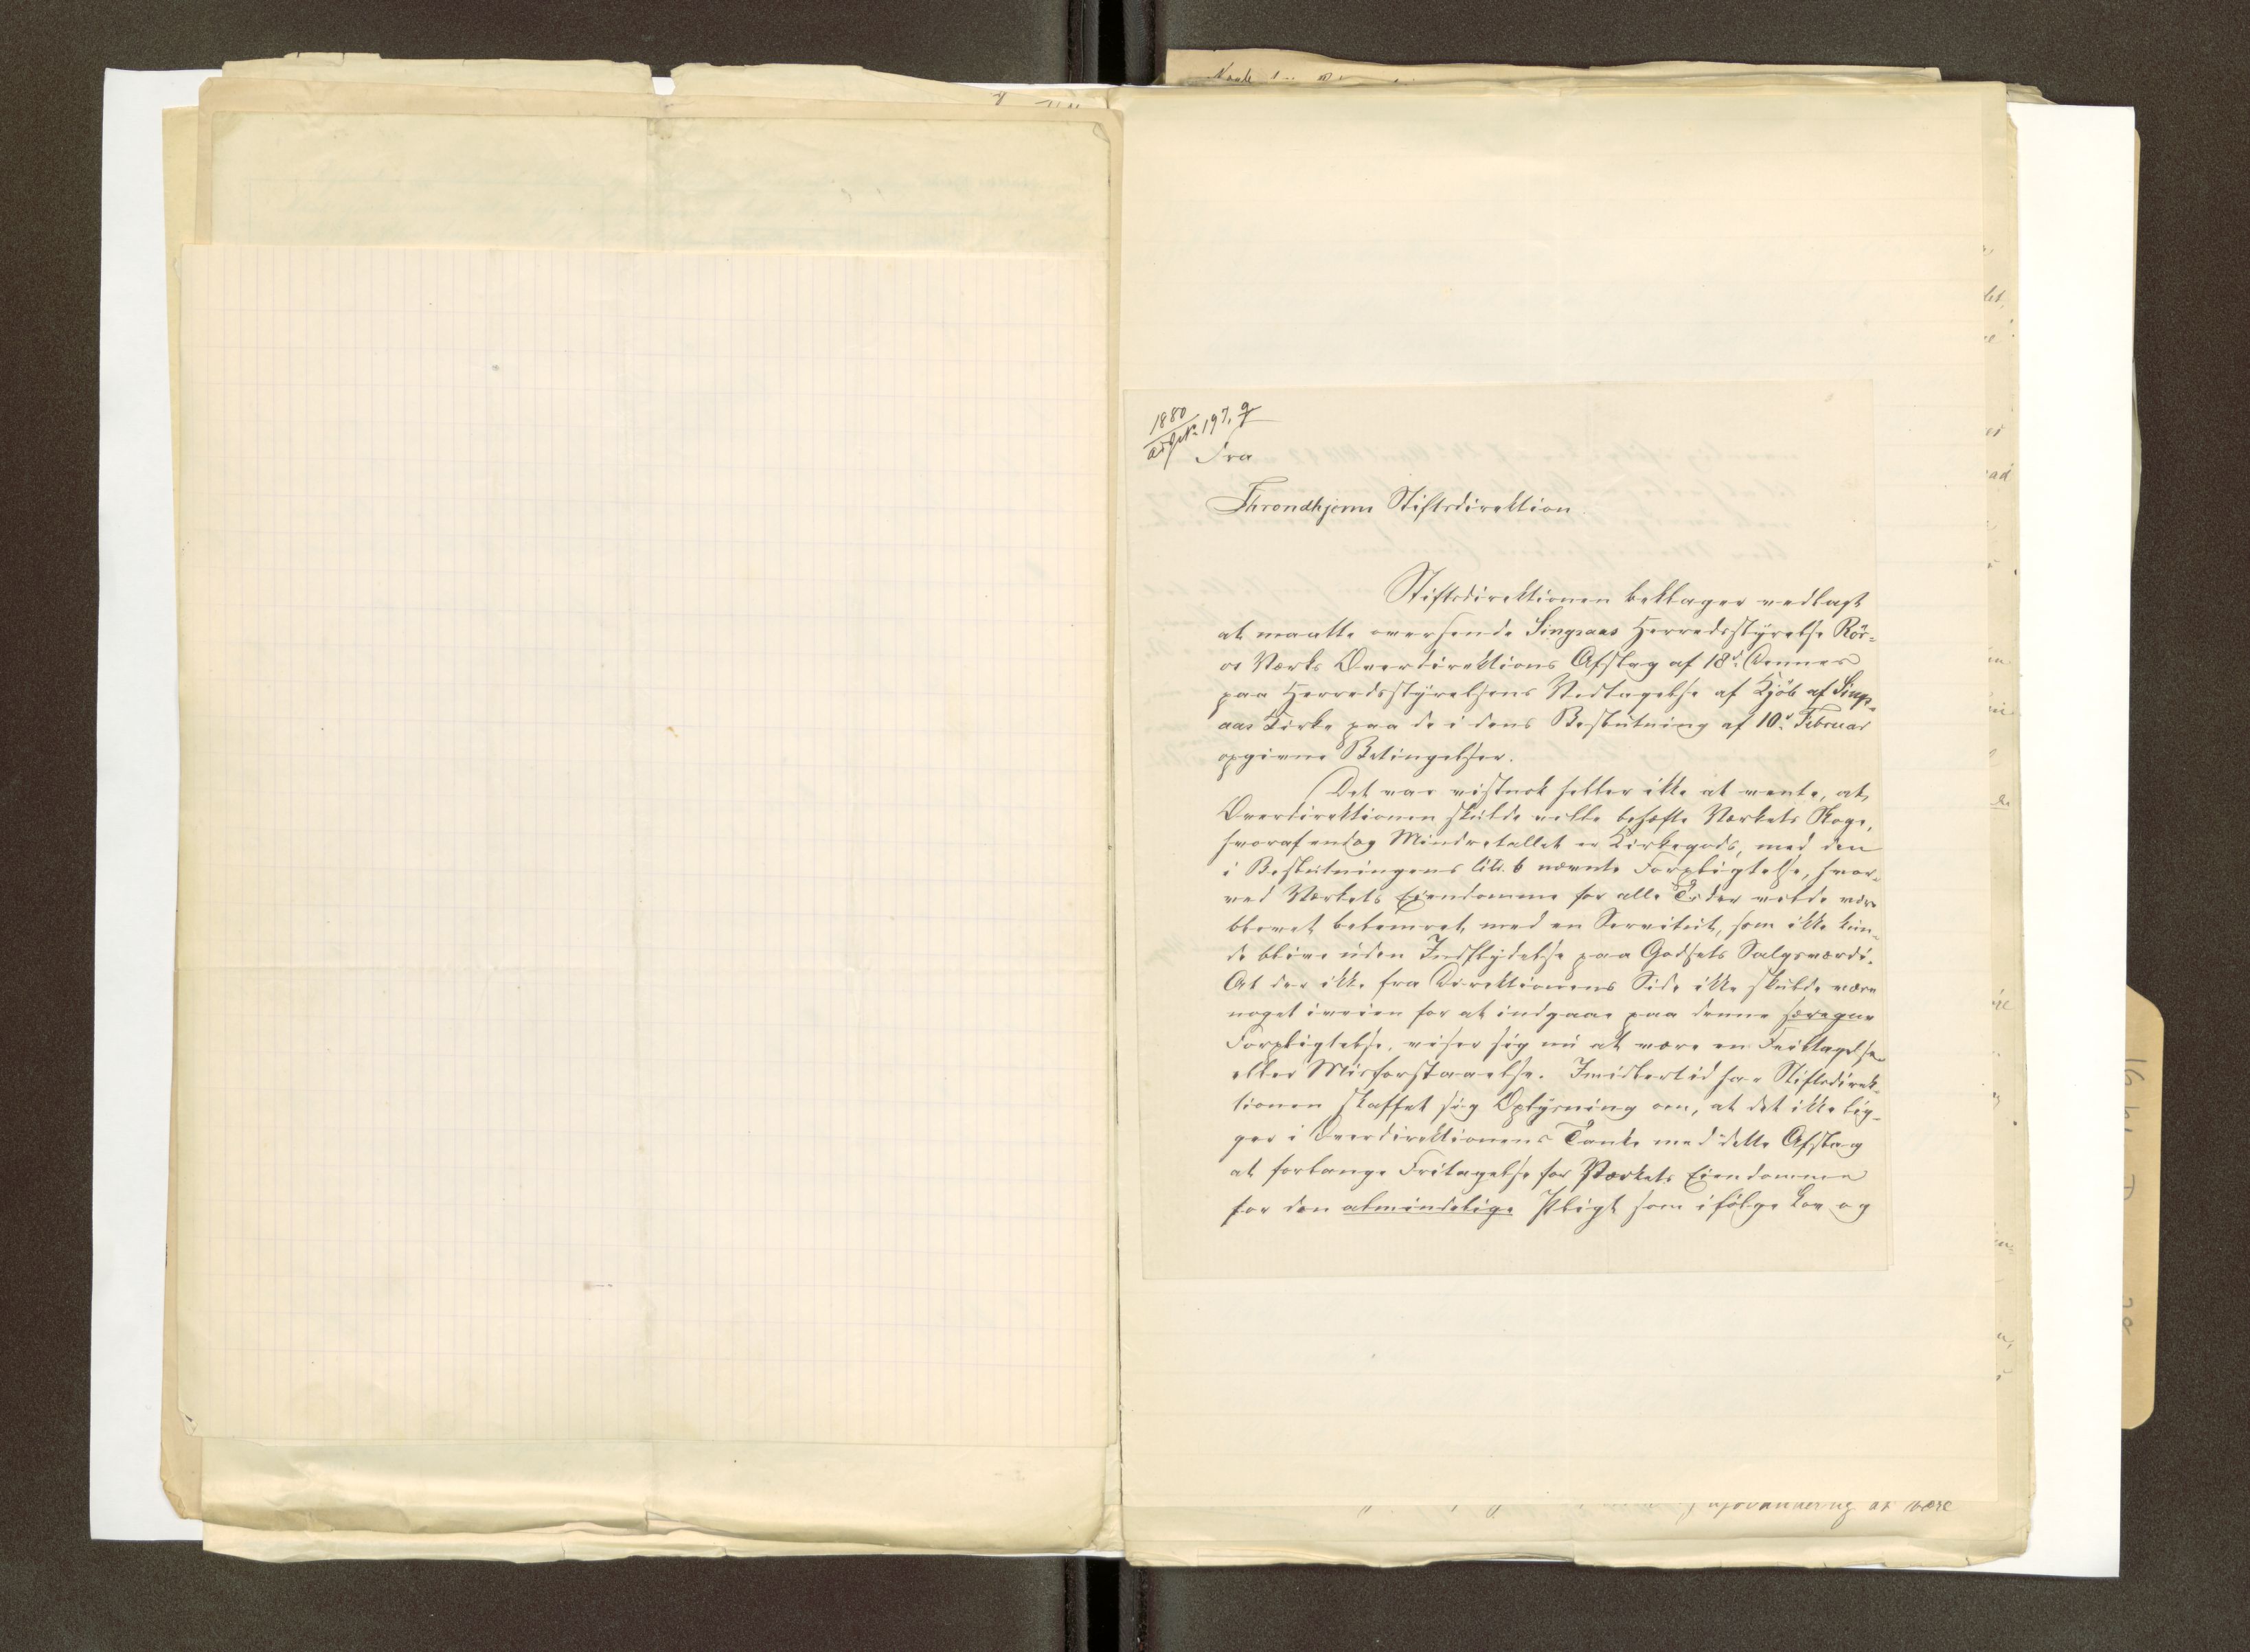 1880
ad Jr. No 197. q
Fra
Throndhjems Stiftsdirektion.
Stiftsdirektionen beklager vedlagt
at maatte oversende Singsaas Herredsstyrelse Rör-
os Værks Overdirektions Afslag af 18d. Dennes
paa Herredsstyrelsens Vedtagelse af Kjöb af Sings-
aas Kirke paa de i dens Beslutning af 10d. Februar
opgivne Betingelser.
Det var vistnok heller ikke at vente, at
Overdirektionen skulde ville behæfte Værkets Skoge,
hvoraf endog Mindretallet er Kirkegods, med den
i Beslutningens litr. b nævnte Forpligtelse, hvor-
ved Værkets Eiendomme for alle Tider vilde være
blevet bebyrdet med en Servitut, som ikke kun-
de blive uden Indflydelse paa Godsets Salgsværdi.
At der ikke fra Direktionens Side ikke skulde være
noget iveien for at indgaae paa denne særegne
Forpligtelse, viser sig nu at være en Feiltagelse
eller Misforstaaelse. Imidlertid har Stiftsdirek-
tionen skaffet sig Oplysning om, at det ikke lig-
ger i Overdirektionens Tanke med dette Afslag
at forlange Fritagelse for Værkets Eiendomme
for den almindelige Pligt som ifölge Lov og
være